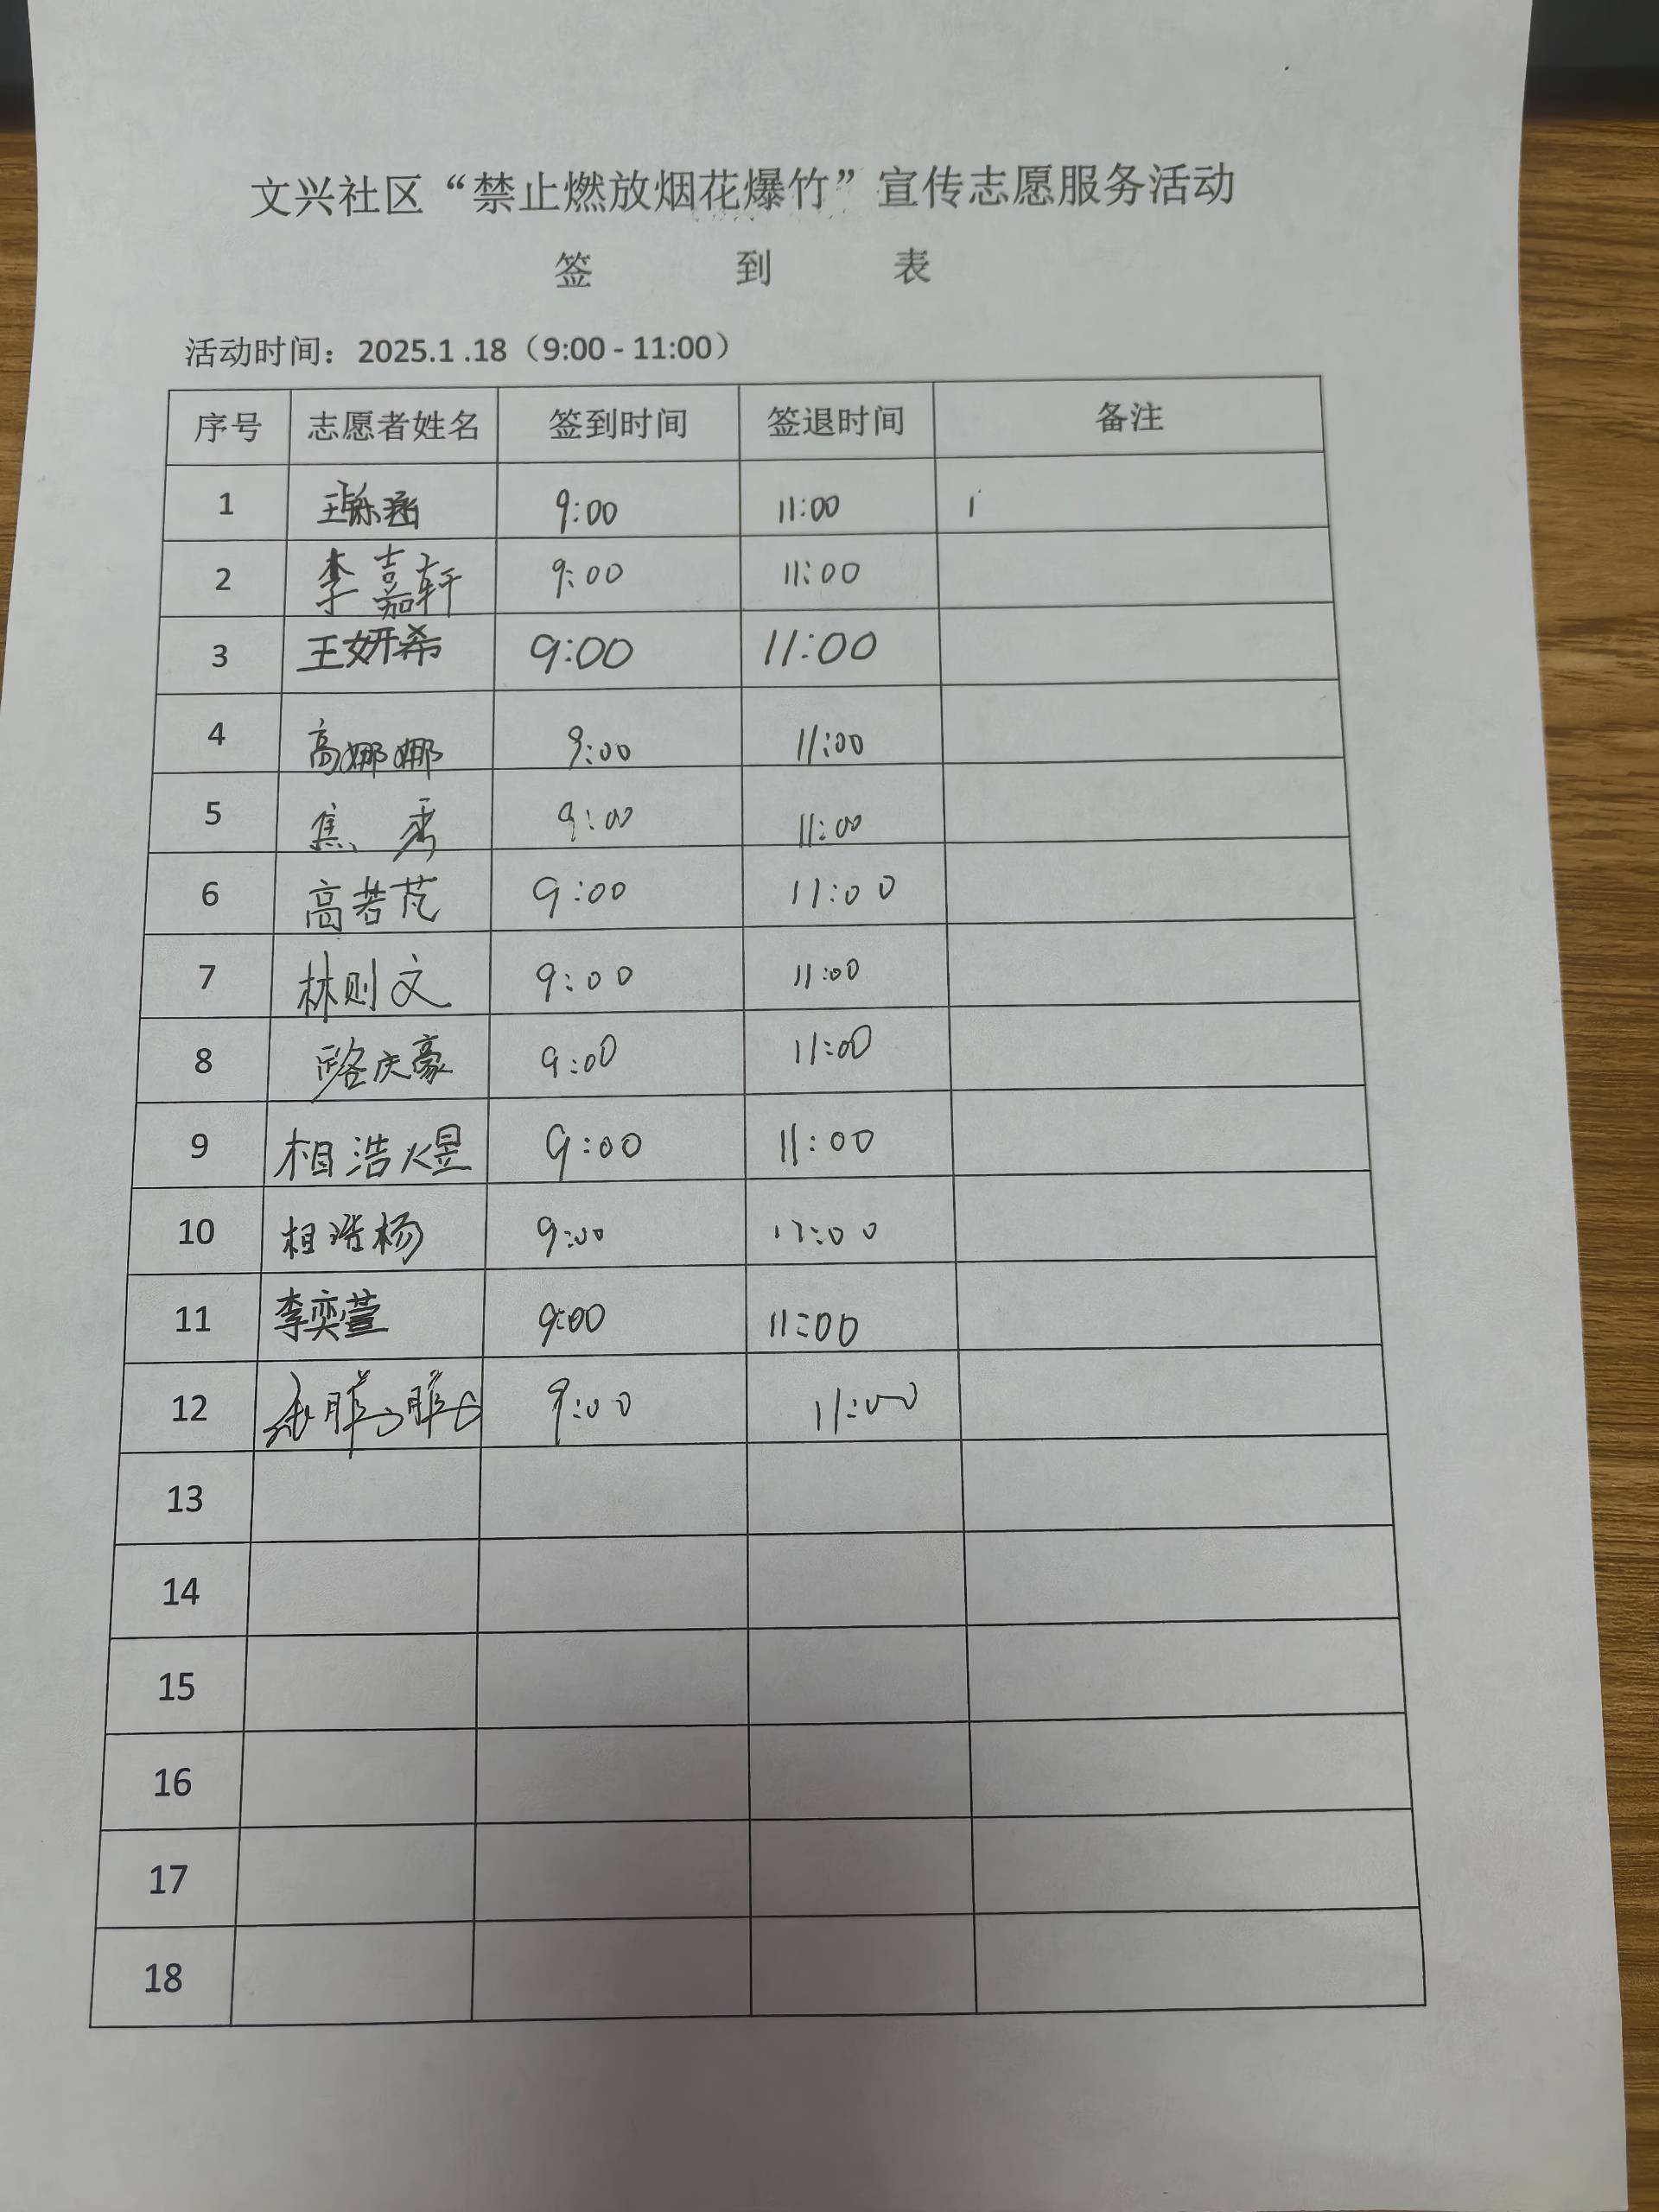 文兴社区“禁止燃放烟花爆竹”宣传志愿服务活动
签 到 表
活动时间：2025.1 .18（9:00 - 11:00）
序号 志愿者姓名 签到时间 签退时间 备注
1 王 涵 9:00 11:00
2 李嘉轩 9:00 11:00
3 王妍希 9:00 11:00
4 高娜娜 9:00 11:00
5 焦秀 9:00 11:00
6 高若芃 9:00 11:00
7 林则文 9:00 11:00
8 路庆豪 9:00 11:00
9 相浩煜 9:00 11:00
10 相浩杨 9:00 11:00
11 李奕萱 9:00 11:00
12 9:00 11:00
13
14
15
16
17
18